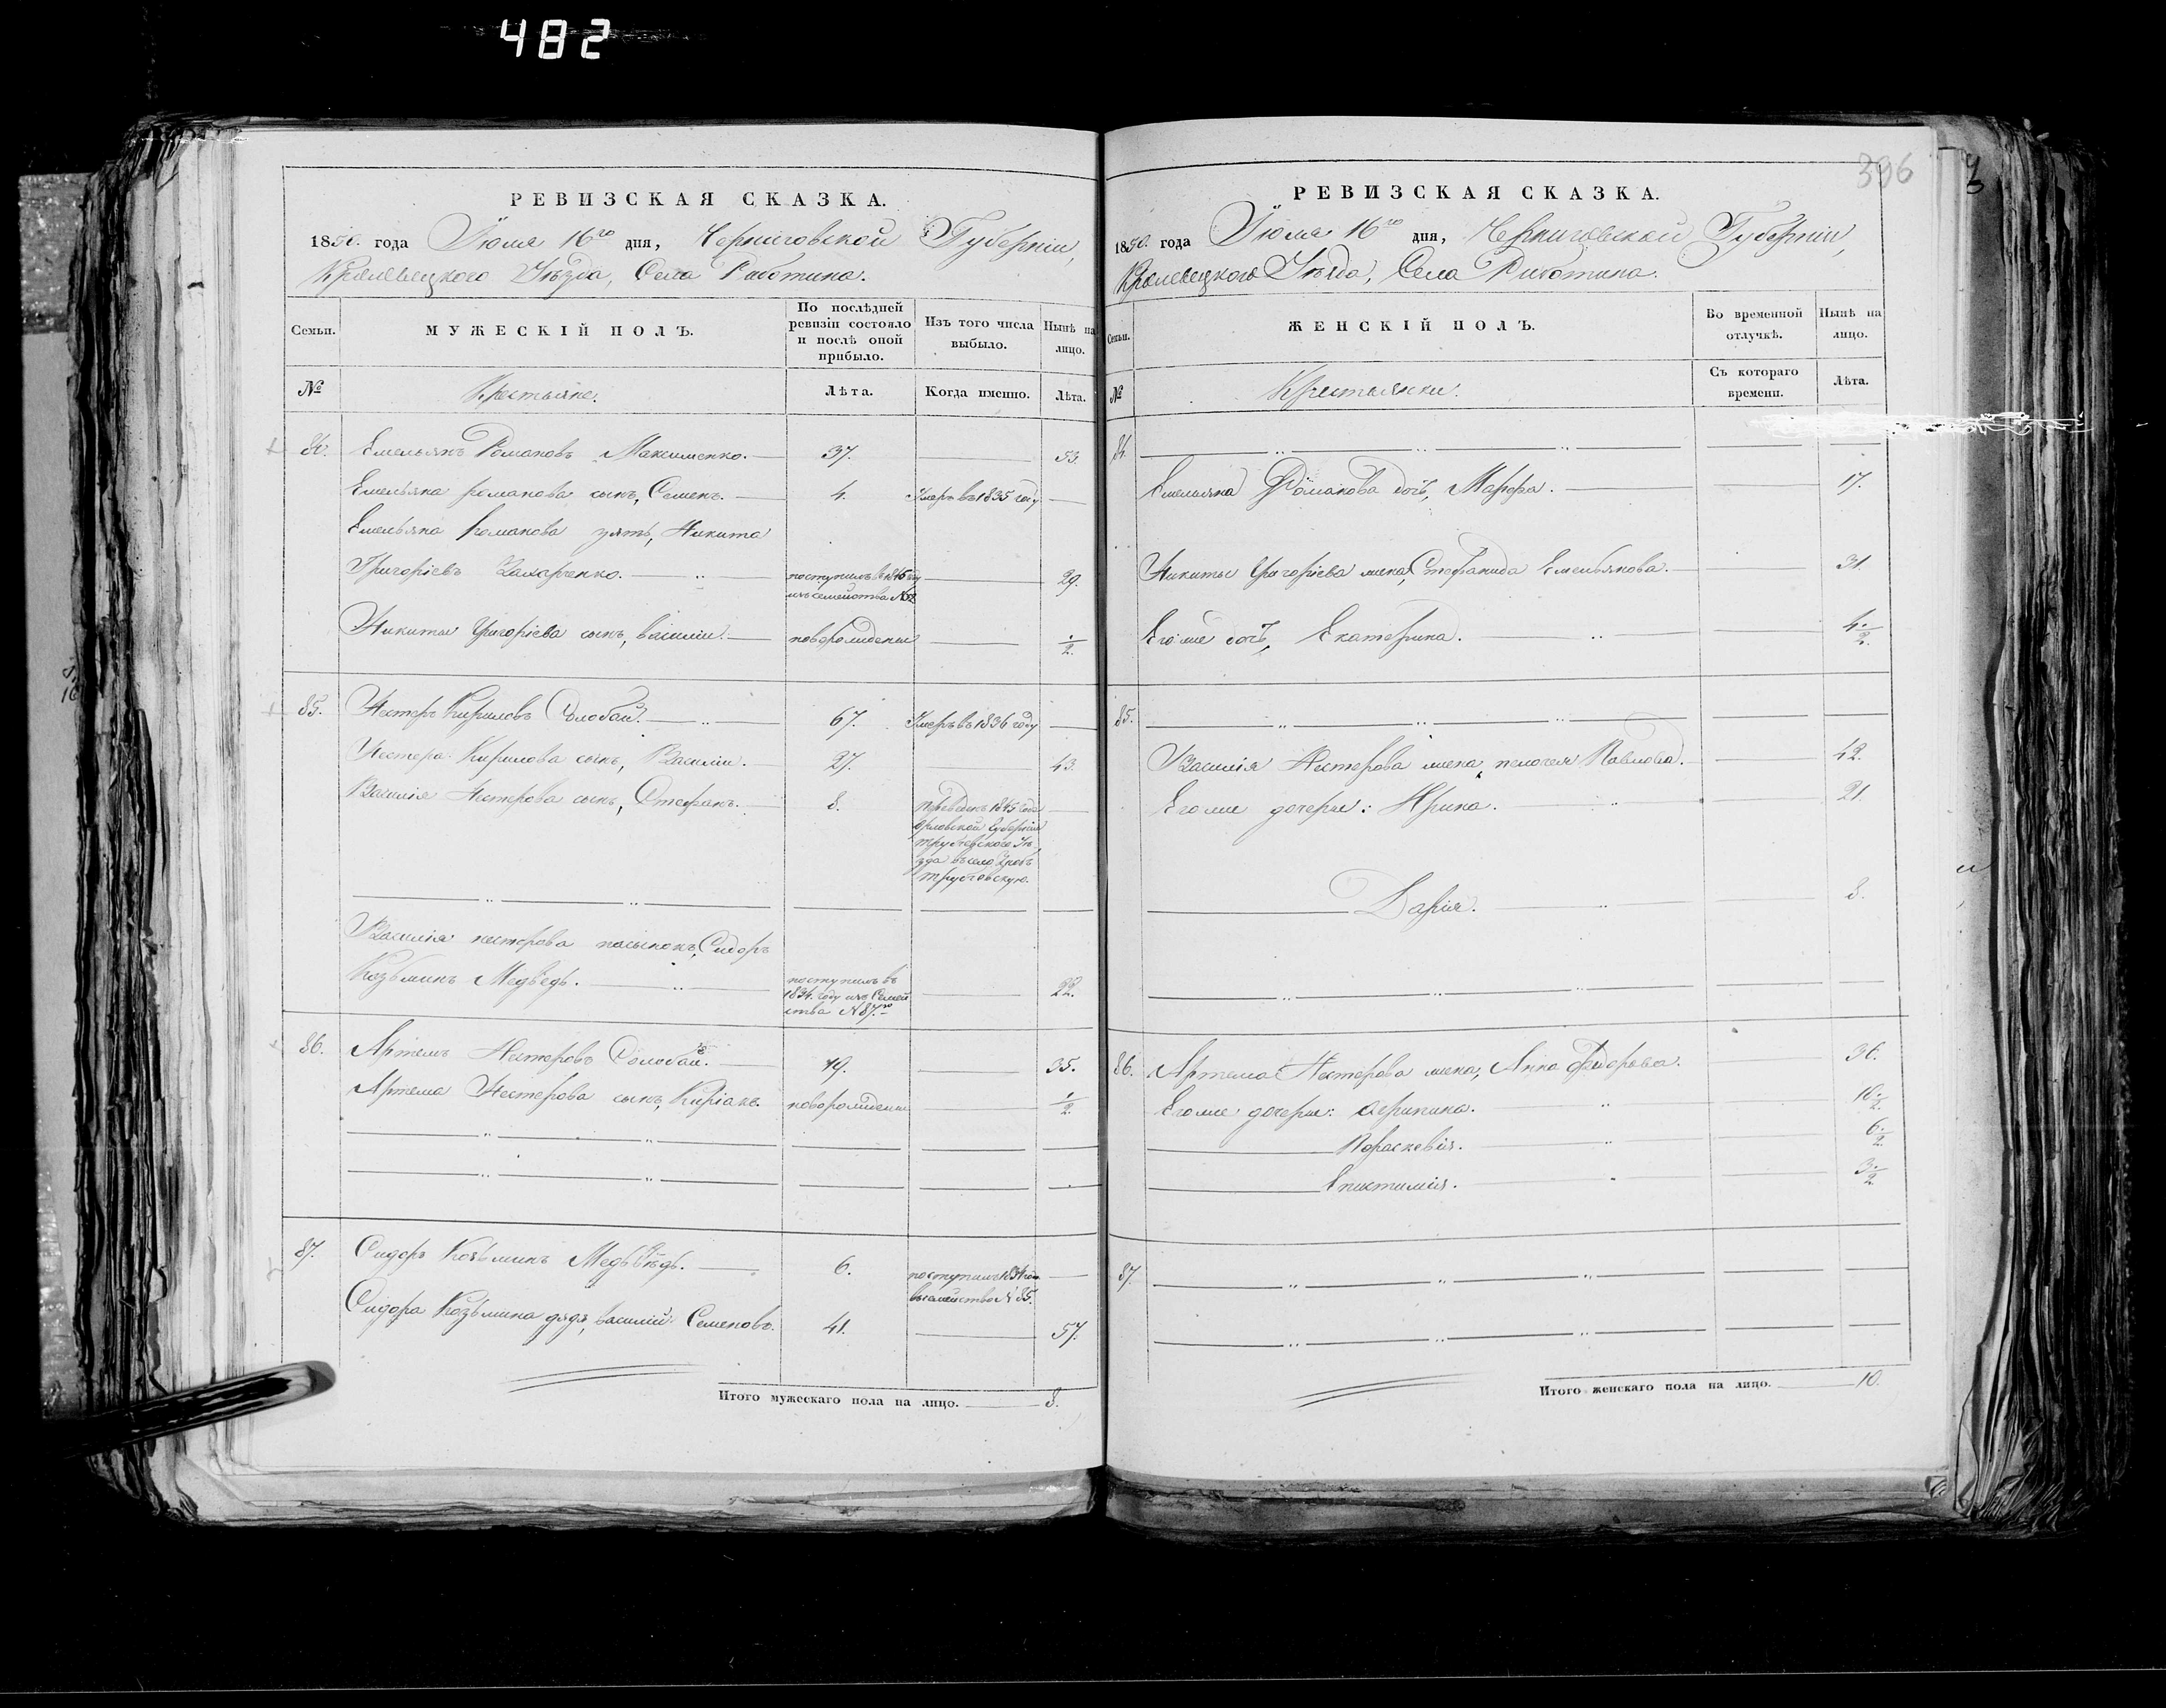 482
РЕВИЗСКАЯ СКАЗКА.
1850. года Іюля 16го дня, Черниговской Губерніи,
Кролевецкого Уѣзда, Села Работина.
Семьи.
МУЖЕСКІЙ ПОЛЪ.
По послѣдней ревизіи состояло и послѣ оной прибыло.
Изъ того числа выбыло.
Нынѣ на лицо.
№
Крестьяне.
Лѣта.
Когда именно.
Лѣта.
84. Емельянъ Романовъ Максименко. 37. 53.
Емельяна романова сынъ, Семенъ. 4. Умеръ въ 1835 году
Емельяна романова зять, Никита
Григоріевъ Захарченко. поступилъ въ 1845 году 29.
изъ семейства №
Никиты Григоріева сынъ, василіи. новорожденъ 1/2.
85. Нестеръ Кириловъ Солобай. 67. Умеръ въ 1836 году
Нестера Кирилова сынъ, Василіи. 27. 43.
Василія Нестерова сынъ, Стефанъ. 8. Переведенъ 1845 года
Орловской Губерніи
трубчевского Уѣ
зда въ село
Василія нестерова пасынокъ, Сидоръ
Козьминъ Медвѣдь. поступилъ въ
1834. году изъ Семей 22.
ства № 87.го
86. Артемъ Нестеровъ Солобай. 19. 35.
Артема Нестерова сынъ, Киріакъ. новорожденъ 1/2.
87. Сидоръ Козьминъ Медвѣдь. 6. поступилъ 1834 года
въ семейство № 85.
Сидора Козьмина дядя, василій Семеновъ. 41. 57.
Итого мужескаго пола на лицо. 8.
396
РЕВИЗСКАЯ СКАЗКА.
1850. года Іюля 16го дня, Черниговской Губерніи,
Кролевецкого Уѣзда, Села Работина.
Семьи.
ЖЕНСКІЙ ПОЛЪ.
Во временной отлучкѣ.
Нынѣ на лицо.
№
Крестьянки.
Съ котораго времени.
Лѣта.
84.
Емельяна Романова дочь, Марфа. 17.
Никиты Григоріева жена, Стефанида Емельянова. 31.
Его же дочь, Екатерина. 4 1/2.
85.
Василія Нестерова жена, пелагея Павлова. 42.
Его же дочери: Ирина. 21.
Дарія. 8.
86. Артема Нестерова жена, Анна Федорова. 36.
Его же дочери: агрипина. 10 1/2.
Параскевія. 6 1/2.
Епистимія. 3 1/2.
87.
Итого женскаго пола на лицо. 10.